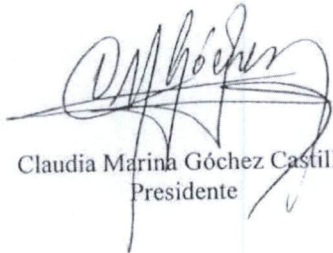 Góchez
Claudia Marina Góchez Castill
Presidente